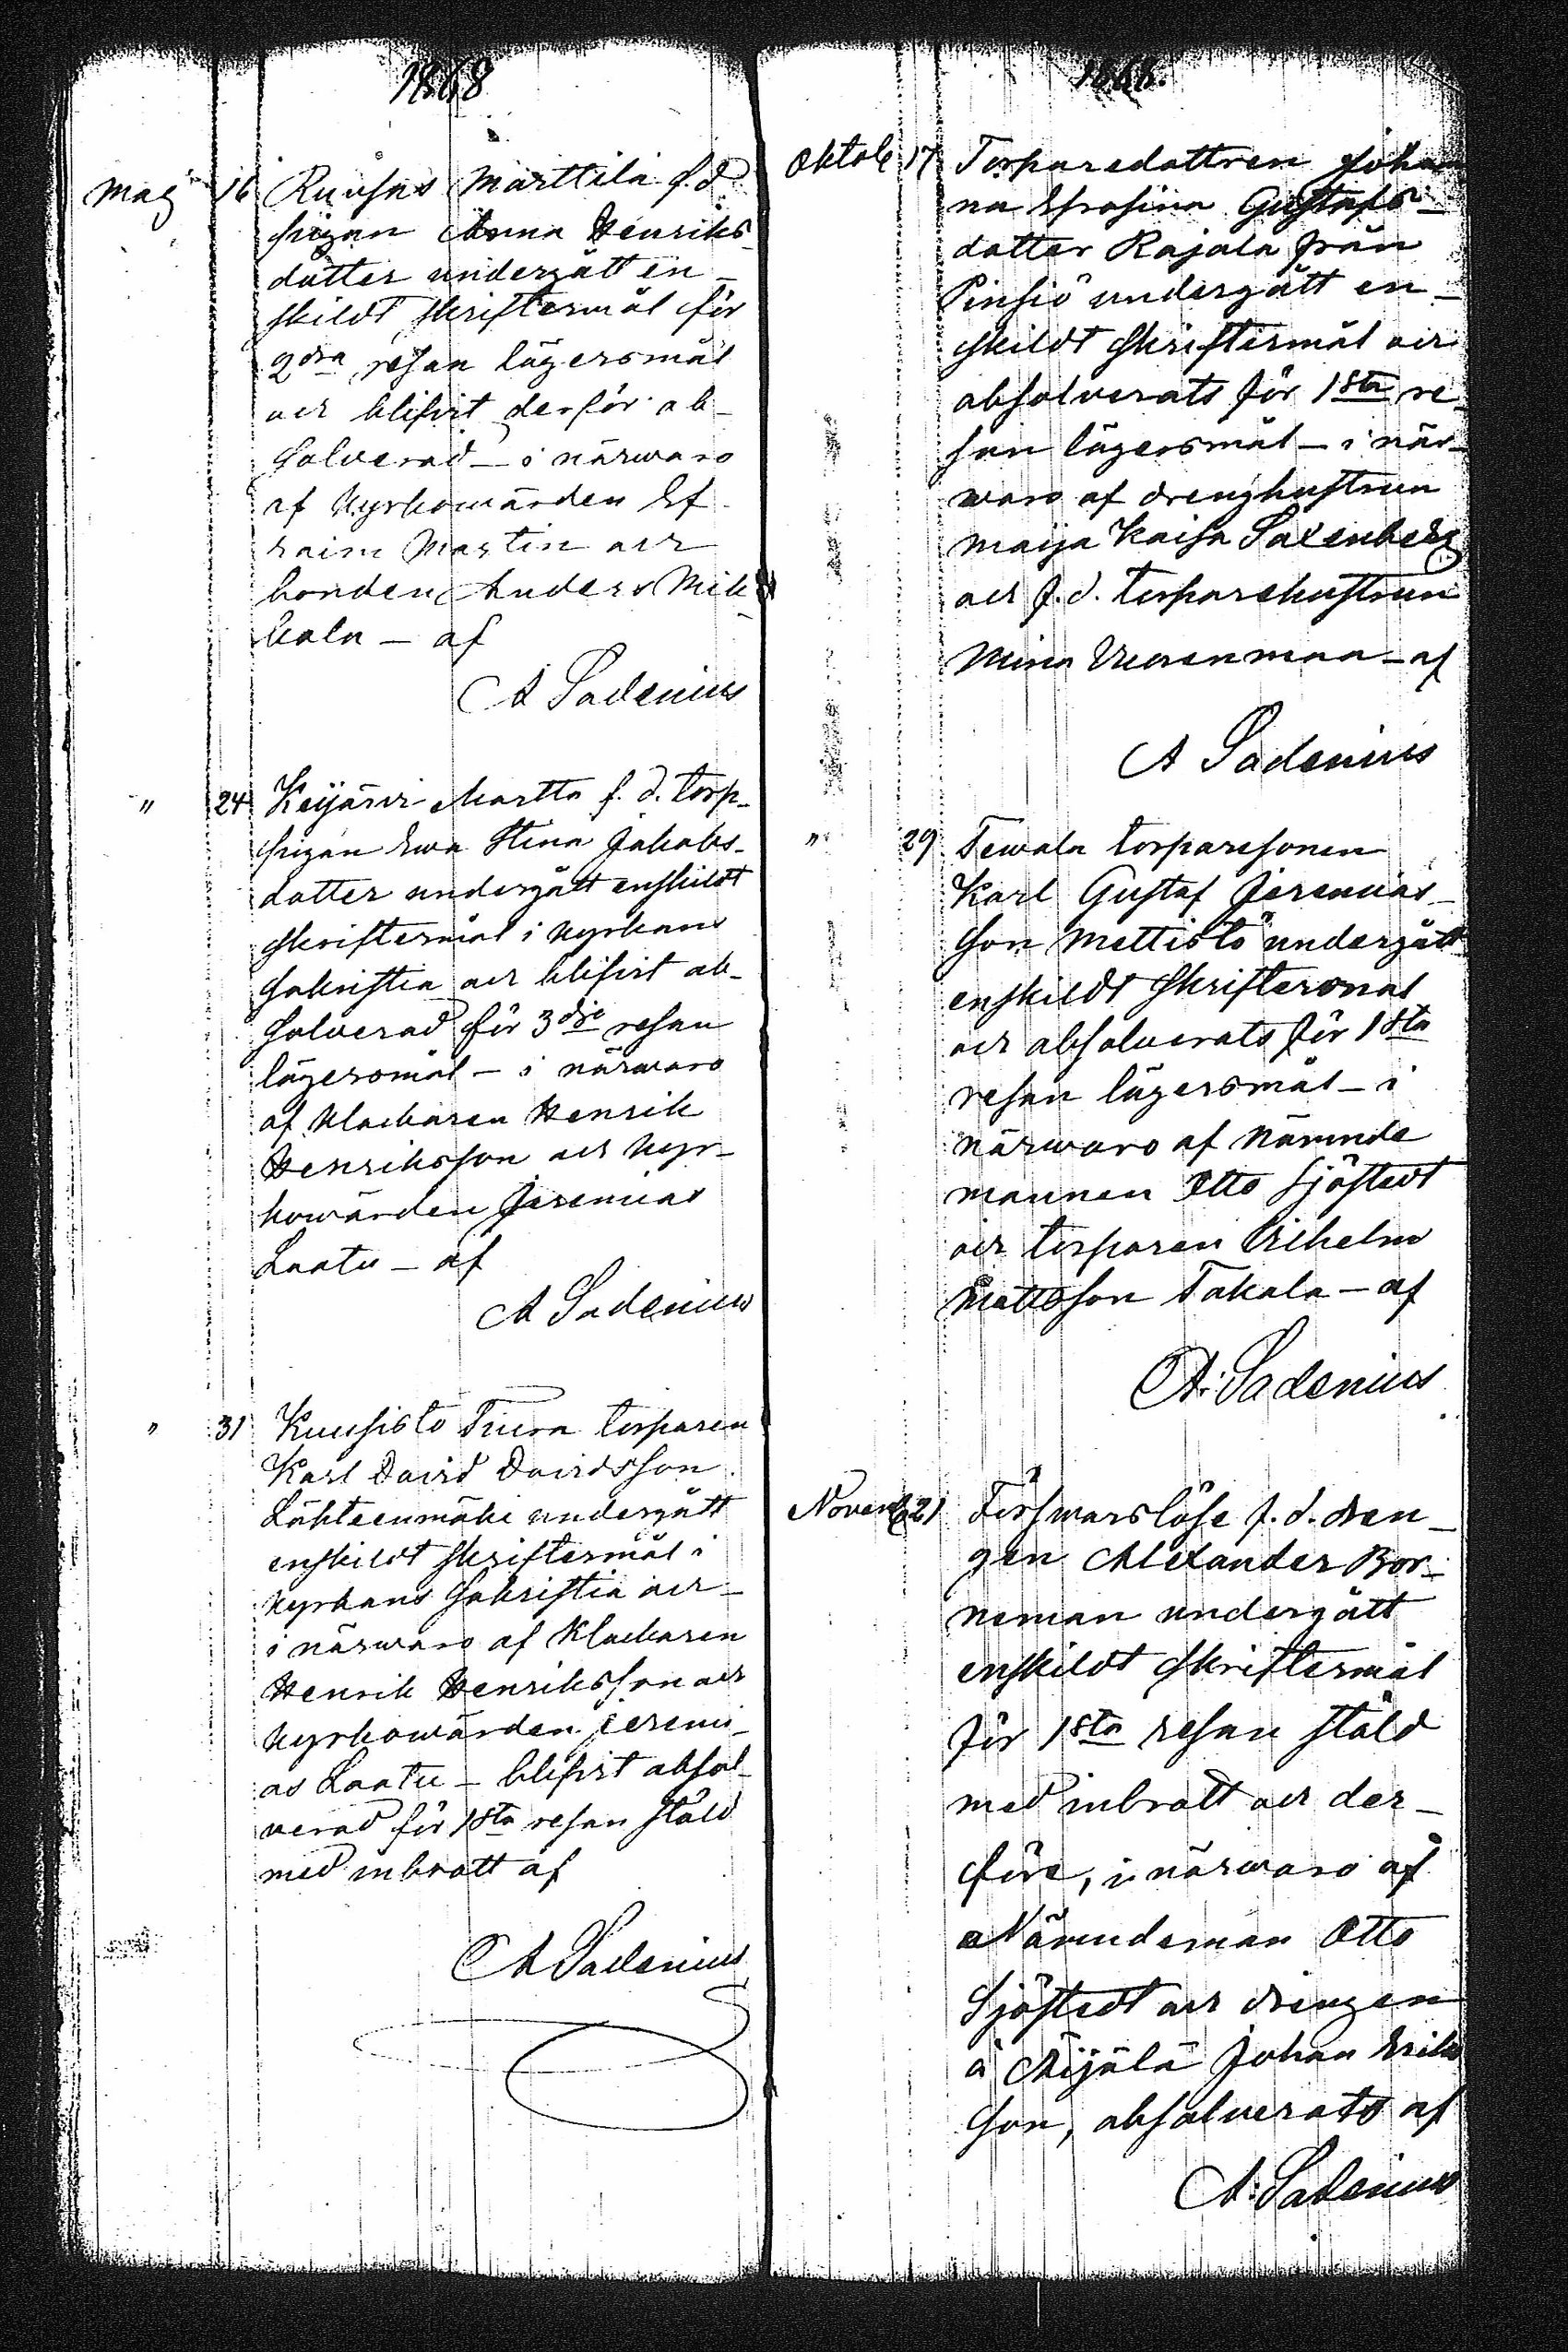 1868
Maj 16 Ruuhas Marttila f.d.
pigan Anna Henriks-
dotter undergått en-
skildt skriftermål för
2dra resan lägersmål
och blifvit derför ab-
solverad – i närvaro
af kyrkowärden Ef-
raim Martin och
bonden Anders Mik-
kola – af
A Sadenius
" 24 Keijärvi Martta f. d. torp-
pigan Ewa Stina Jakobs-
dotter undergått enskildt
skriftermål i kyrkans
sakristia och blifvit ab-
solverad för 3dje resan
lägersmål – i närvaro
af klockaren Henrik
Henriksson och kyr-
kowärden Jeremias
Laatu – af
A Sadenius
" 31 Kuusisto Tiura torparen
Karl David Davidsson
Lähteenmäki undergått
enskildt skriftermål i
kyrkans sakristia och –
i närvaro af klockaren
Henrik Henriksson och
kyrkowärden Jeremi-
as Laatu – blifvit absol-
verad för 1sta resan stöld
med inbrott af
A Sadenius
Oktob 17 Torparedottren Johan
na Efrosina Gustafs-
dotter Rajala från
Pinsiö undergått en-
skildt skriftermål och
absolverats för 1sta re-
san lägersmål – i när-
varo af drenghustrun
Maija Kaisa Saxenberg
och f.d. torparehustrun
Mina Vuorenmaa – af
A Sadenius
" 29 Tewala torparesonen
Karl Gustaf Jeremias-
son Mettistö undergått
enskildt skriftermål
och absolverats för 1sta
resan lägersmål – i
närvaro af nämnde
mannen Otto Sjöstedt
och torparen Vilhelm
Mattsson Takala – af
A. Sadenius
Novemb 21 Försvarslöse f.d. dren-
gen Alexander Bor-
neman undergått
enskildt skriftermål
för 1sta resan stöld
med inbrott och der-
före, i närvaro af
Nämndeman Otto
Sjöstedt och drengen
å Äijälä Johan Eriks
son, absolverats af
A. Sadenius